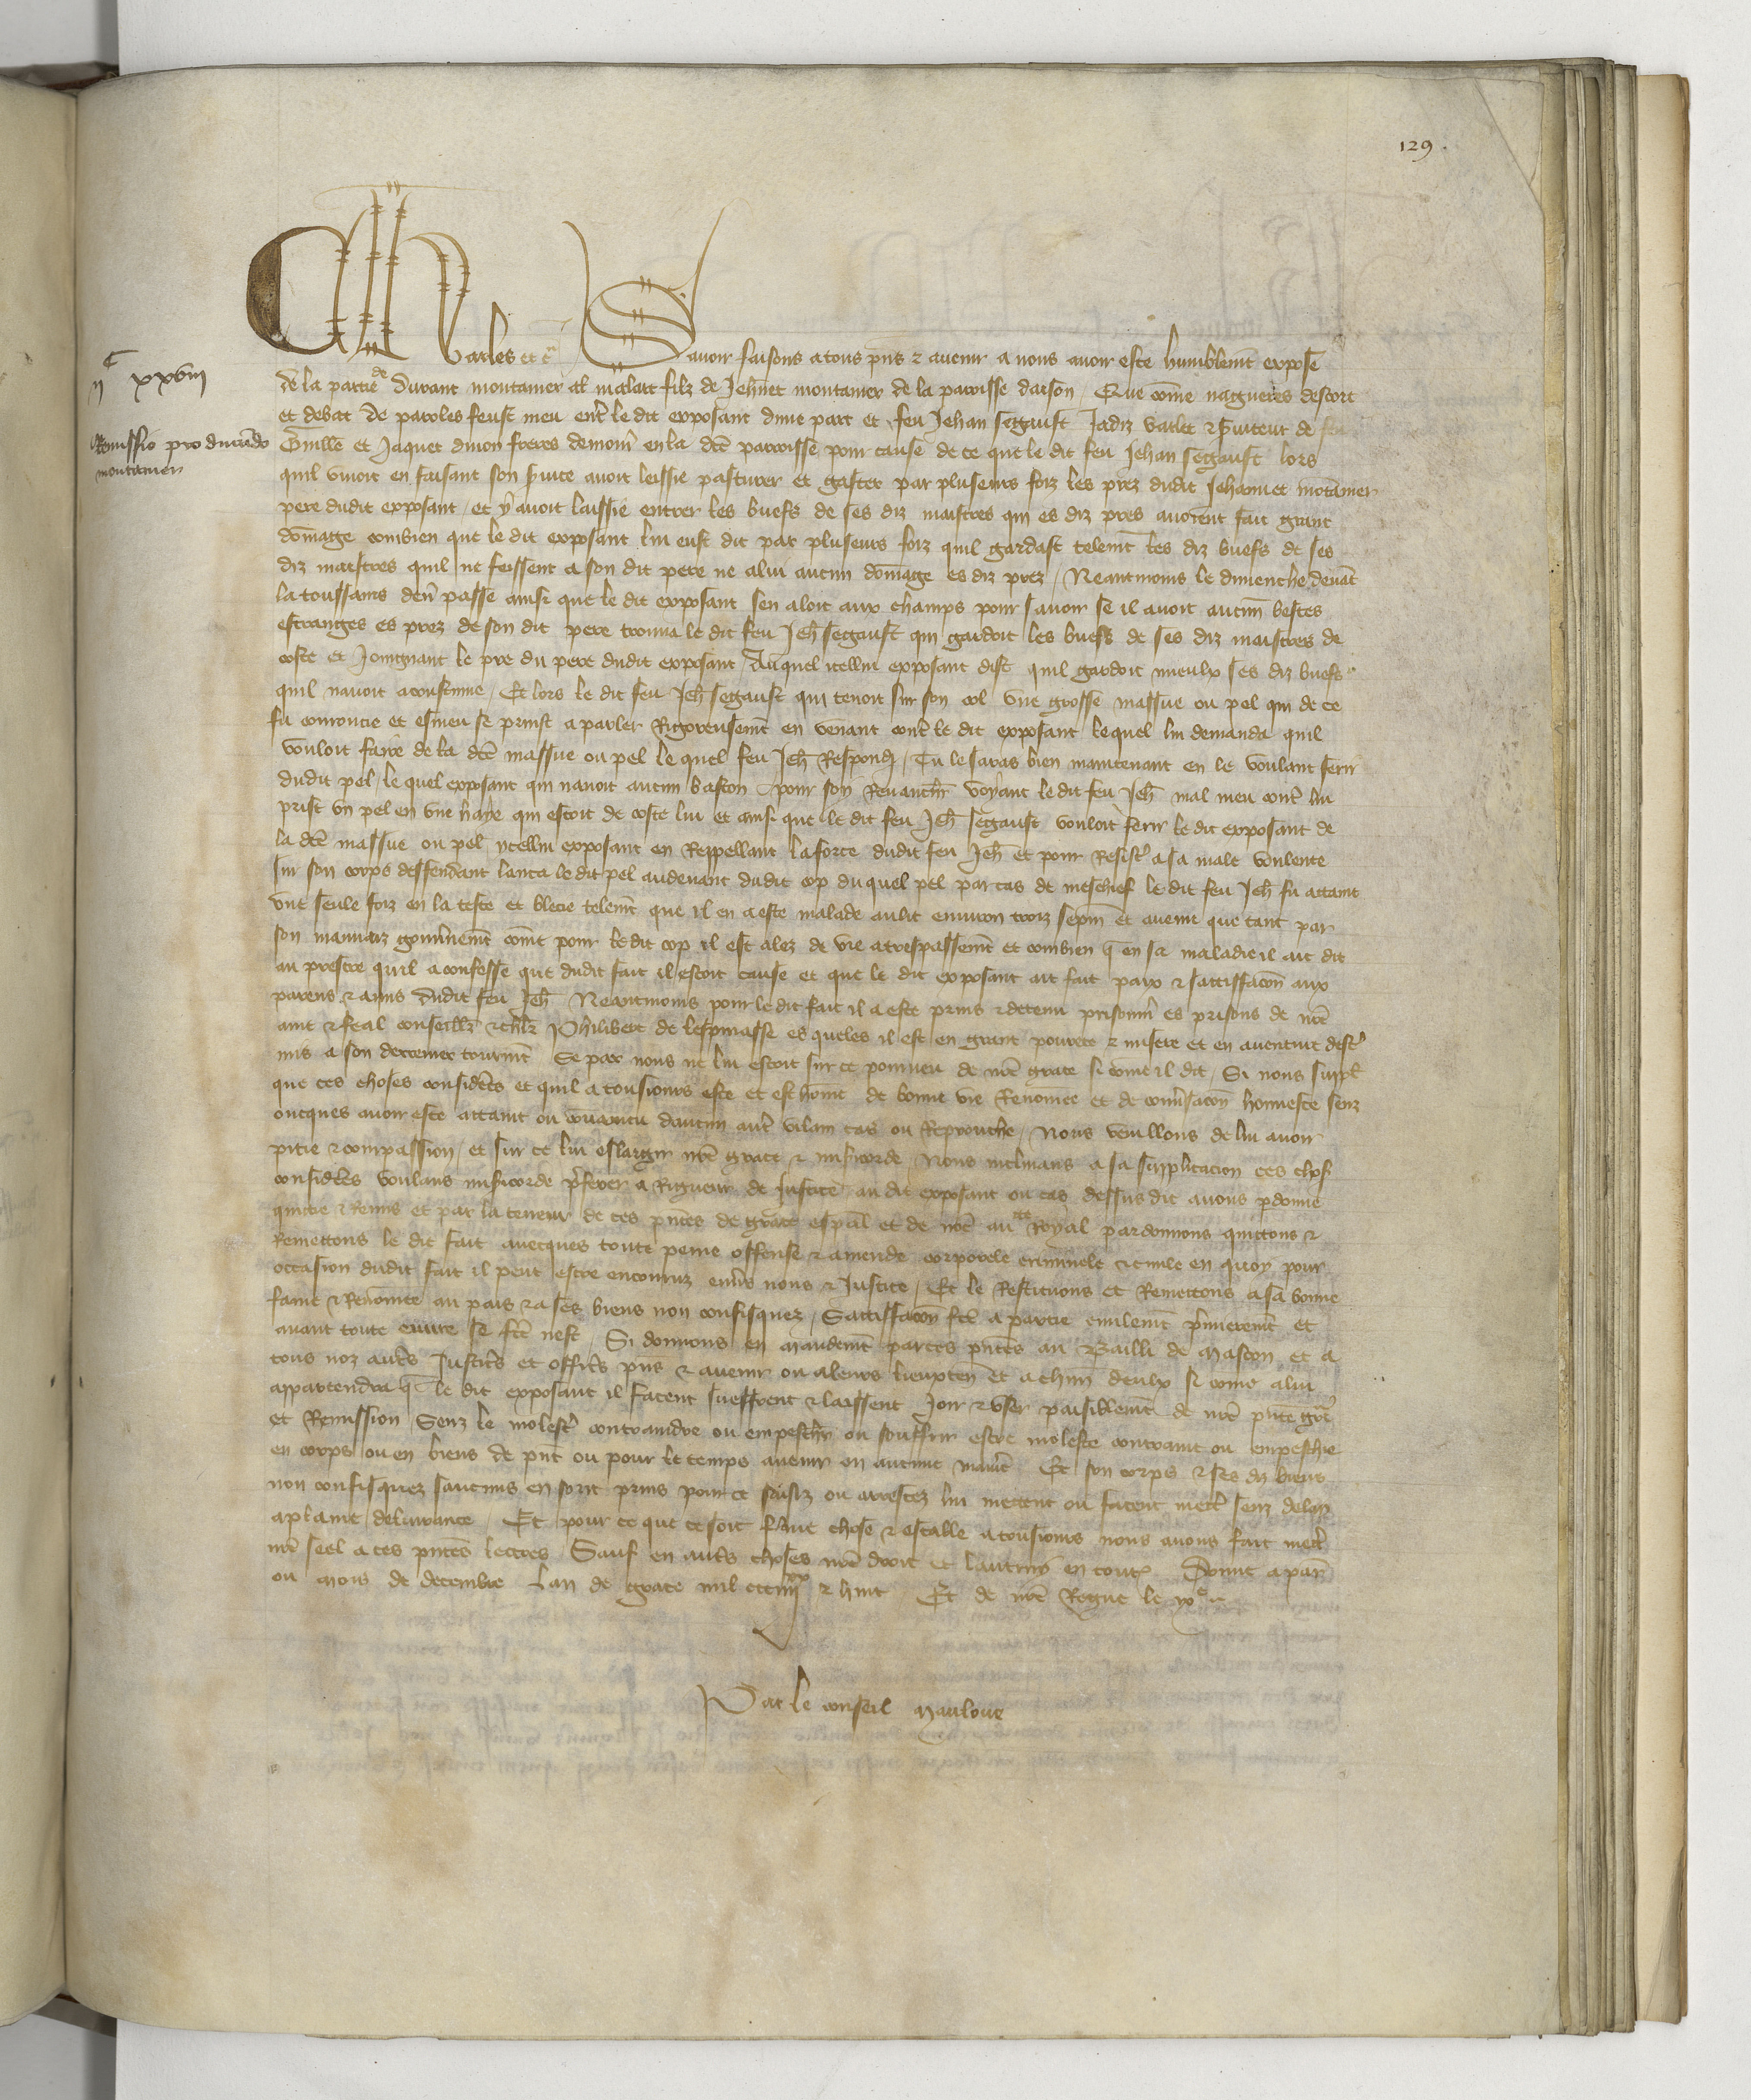 129.
Charles etc Savoir faisons a tous pns & avenir a nous avoir este humblemt expose
IIc XXVIII
de la partie de Durant montanier al malart filz de Jehnet montanier de la paroisse darson / Que come nagueres descort
et debat de paroles feust meu entr le dit exposant dune part et feu Jehan segaust Jadiz varlet & s'viteur de feu
Remissio pro durando
montanier
Guille et Jaquet dinon freres demour en la dte parroisse pour cause de ce que le dit feu Jehan segaust lors
quil vivoit en faisant son s'vice avoit leissie pasturer et gaster par pluseurs foiz les prez dudit Jehannet motanier
pere dudit exposant / et y avoit laissie entrer les buefs de ses diz maistres qui es diz pres avoient fait grant
domage combien que le dit exposant lui eust dit par pluseurs foiz quil gardast telemt les diz buefs de ses
diz maistres quil ne feissent a son dit pere ne a lui aucun domage es diz prez / Neantmoins le dimenche devat
la toussains derr passe ainsi que le dit exposant sen aloit aux champs pour savoir se il avoit aucuns bestes
estranges es prez de son dit pere trouva le dit feu Jeh segaust qui gardoit les buefs de ses diz maistres de
coste et Joingnant le pre du pere dudit exposant / Auquel icellui exposant dist quil gardoit mieulx ses diz buefs
quil navoit acoustume / Et lors le dit feu Jeh segaust qui tenoit sur son col une grosse massue ou pel qui de ce
fu courroucie et esmeu se prinst a parler Rigoreusemt en venant contr le dit exposant lequel lui demanda quil
vouloit faire de la dte massue ou pel le quel feu Jeh Respondi / Tu le saras bien maintenant en le voulant ferir
dudit pel / le quel exposant qui navoit aucun baston pour soy Revancher voyant le dit feu Jeh mal meu contr lui
prist un pel en une haye qui estoit de coste lui et ainsi que le dit feu Jeh segaust vouloit ferir le dit exposant de
la dte massue ou pel ycellui exposant en Reppellant la force dudit feu Jeh et pour Resistr a sa male voulente
sur son corps deffendant lanca le dit pel au devant dudit cop du quel pel par cas de meschief le dit feu Jeh fu attaint
une seule foiz en la teste et blecie telemt que il en a este malade au lit environ troiz sepm et avenu que tant par
son mauvaiz gouvnemt comt pour le dit cop il est alez de vie a trespassemt et combien q en sa maladie il ait dit
au prestre qui l a confesse que dudit fait il estoit cause et que le dit exposant ait fait paix & sattiffacon aux
parens & amis dudit feu Jeh Neantmoins pour le dit fait il a este prins & detenu prisonnr es prisons de nre
ame & feal conseillr & chlr Philibert de lespinasse es queles il est en grant povrete & misere et en aventure destr
mis a son derrenier tourmt Se par nous ne lui estoit sur ce pourveu de nre grace si come il dit / Si nous suppl
que ces choses considres et quil a tousiours este et est home de bonne vie Renomee et de convsacon honneste senz
oncques avoir este attaint ou convaincu daucun autr vilain cas ou Reprouche / Nous veuillons de lui avoir
pitie & compassion / et sur ce lui eslargir nre grace & misicorde / Nous inclinans a sa supplicacion ces chos
considres voulans misicorde prferer a Rigueur de Justice au dit exposant ou cas dessus dit avons pdonne
quictie & Remis et par la teneur de ces pntes de grace espal et de nre aucte Royal pardonnons quittons &
Remettons le dit fait avecques toute peine offense & amende corporele criminele & civile en quoy pour
occasion dudit fait il peut estre encouruz envrs nous & Justice / Et le Restituons et Remettons a sa bonne
fame & Renomee au pais & a ses biens non confisquez / Sattiffacon fte a partie civilemt prmieremt et
avant toute euvre se fte nest / Si donnons en mandemt par ces pntes au Bailli de Mascon et a
tous noz autrs Justicrs et officrs pns & avenir ou a leurs lieuxten et a chun deulx si come a lui
appartendra q le dit exposant il facent sueffrent & laissent Joir & user paisiblemt de nre pnte grce
et Remission Senz le molestr contraindre ou empeschr ou souffrir estre moleste contraint ou empeschie
en corps ou en biens de pnt ou pour le temps avenir en aucune manre Et son corps & ses diz biens
non confisquez saucuns en sont prins pour ce saisiz ou arrestez lui mettent ou facent mettr senz delay
a plaine delivrance / Et pour ce que ce soit ferme chose & estable a tousiours nous avons fait mettr
nre seel a ces pntes lettres Sauf en autrs choses nre droit et lautruy en toutes Donne a pars
ou mois de decembre Lan de grace mil ccciiiixx & huit Et de nre Regne le ixe
Par le conseil Mauloue